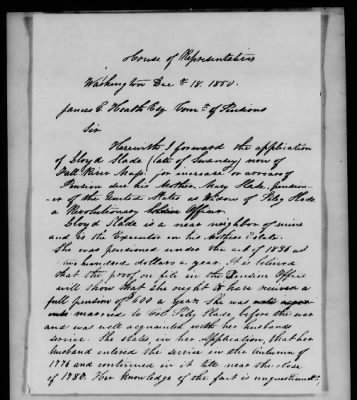 House of Representatives
Washington Dec 18. 1850.
James E. Heath Esq Comr of Pensions
Sir
Herewith I forward the application
of Lloyd Slade (late of Swansey) now of
Fall River Mass for increase or arrears of
Pension due his Mother, Mary Slade, pension-
er of the United States as Widow of Peleg Slade
a Revolutionary Officer
Lloyd Slade is a near neighbor of mine
and is the Executor on his Mothers Estate.
She was pensioned under the act of 1836 at
two hundred dollars a year. It is believed
that the proof on file in the Pension Office
will show that she ought to have received a
full pension of 600 a year She was
married to Col Peleg Slade, before the war
and was well acquainted with her husbands
service. She states, in her Application, that her
husband entered the service in the Autumn of
1776 and continued in it till near the close
of 1780. Her knowledge of the fact is unquestioned